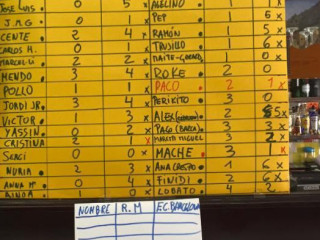 JOSE LUIS 0 5 x
ASECINO 1 1 x
J.M.G 0 x
PEP 1 6 x
CENTE 2 4 x
RAMÓN 1 5 x
CARLOS M. 0 0
TRUJILLO 6 x
2 2 x
MAITE 0 0 x
MENDO 3 4 x
ROKE 2 0
POLLO 1 1 x
PACO 2 1 x
JORDI JR. 3 4 x
PERIKITO 3 0
VICTOR 1 3 x
ALEX 2 5 x
YASSIN 0 2 x
PACO (BARÇA) 3 3 x
CRISTINA 2 1 x
MIGUEL 3 2 x
SERGI 0 0 x
MACHE 3 1 x
NURIA 2 3 x
ANA CRESPO 1 6 x
ANNA Mª 0 4 x
FINIDI 2 6 x
AINOA 1 0 x
LOBATO 4 2
NOMBRE R.M F.C. BARCELONA